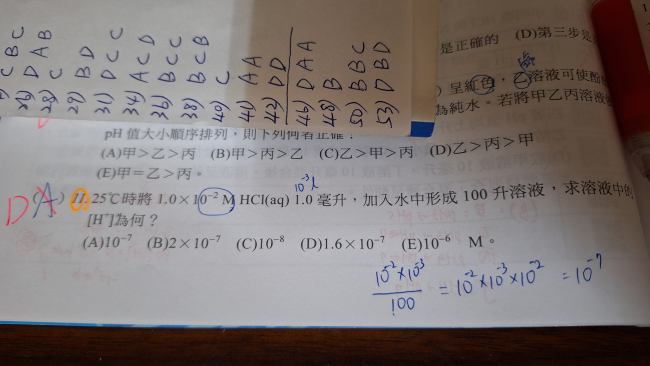 C B C
28) D A B
29) C
31) B D
34) D C C
36) A C D
38) B C C
39) B C B
40) C
41) A A
42) D D
46) D A A
48) B
50) B B C
53) D B D
是正確的 (D)第三步是
呈紅色,乙溶液可使酚
為純水。若將甲乙丙溶液
pH 值大小順序排列,則下列何者正確?
(A)甲>乙>丙 (B)甲>丙>乙 (C)乙>甲>丙 (D)乙>丙>甲
(E)甲=乙>丙。
10⁻³ l
D A ( ) 11. 25℃時將 1.0×10⁻² M HCl(aq) 1.0 毫升,加入水中形成 100 升溶液,求溶液中的
[H⁺]為何?
(A)10⁻⁷ (B)2×10⁻⁷ (C)10⁻⁸ (D)1.6×10⁻⁷ (E)10⁻⁶ M。
10⁻²×10⁻³ / 100 = 10⁻²×10⁻³×10⁻² = 10⁻⁷